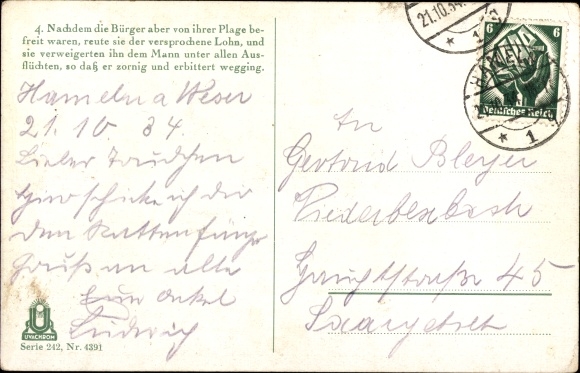 4. Nachdem die Bürger aber von ihrer Plage be-
freit waren, reute sie der versprochene Lohn, und
sie verweigerten ihn dem Mann unter allen Aus-
flüchten, so daß er zornig und erbittert wegging.
Hameln a Weser
21. 10. 34.
Lieber
schicke ich dir
den Rattenfänger
Gruß an alle
Euer Onkel
Ludwig
UVACHROM
Serie 242, Nr. 4391
21.10.34.
* 1
6 6
Deutsches Reich
HAMELN
* 1
An
Gertrud Bleyer
Niederbexbach
Hauptstraße 45
Saargebiet